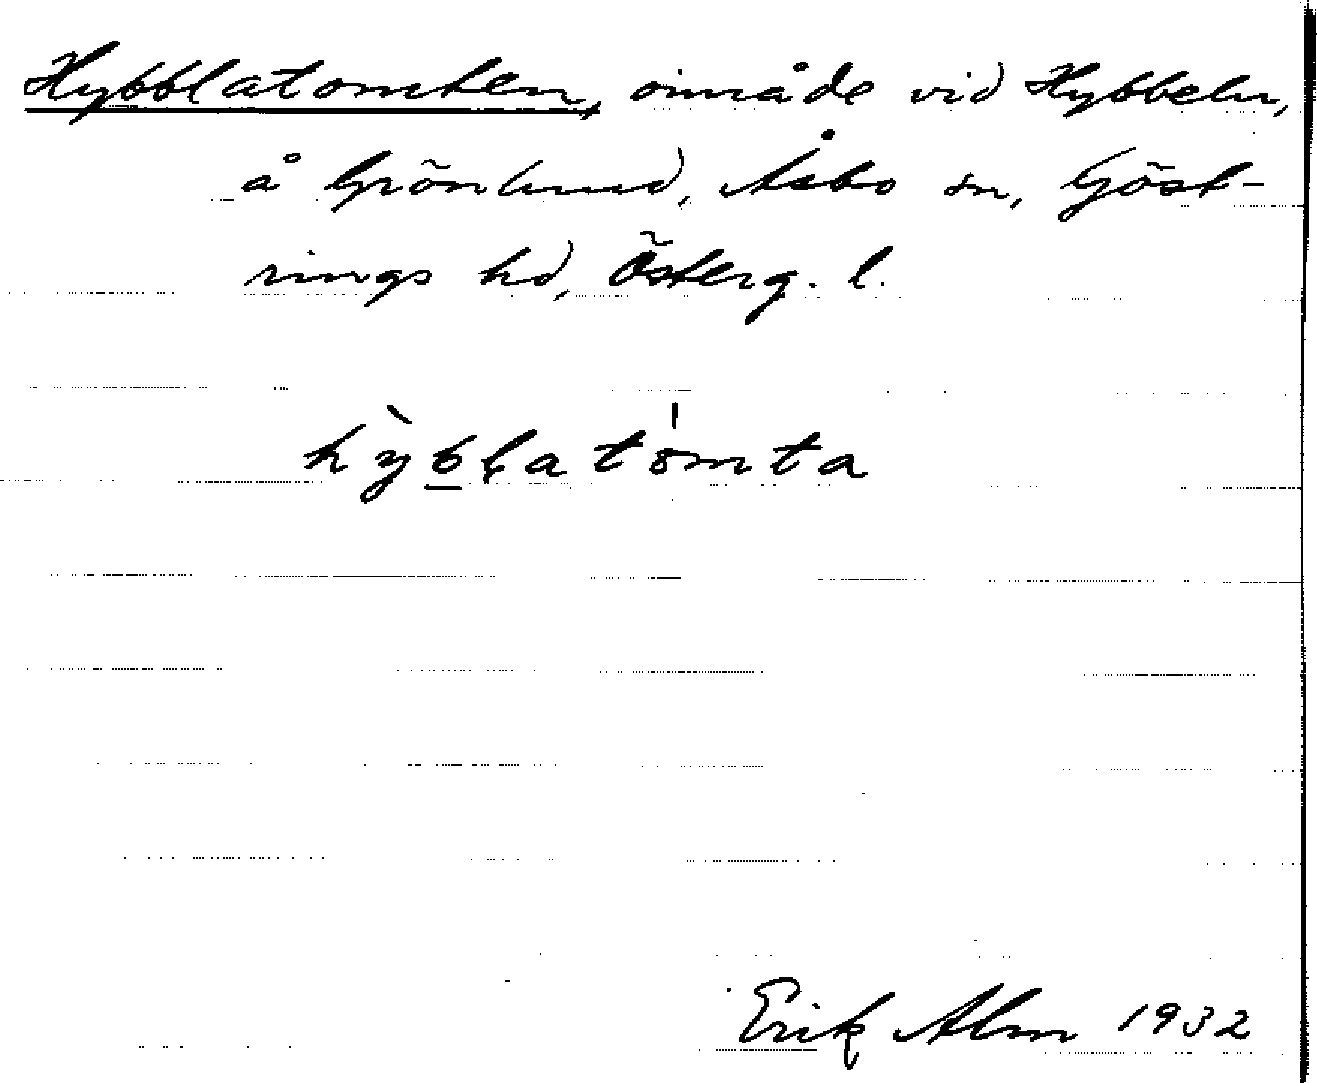 Hybblatomten, område vid Hybbeln,
å Grönlund, Åsbo sn, Göst-
rings hd, Österg. l.
hỳb̲latömta
Erik Alm 1932